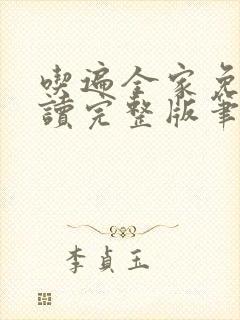 喫遍全家免
讀完整版筆
李貞玉